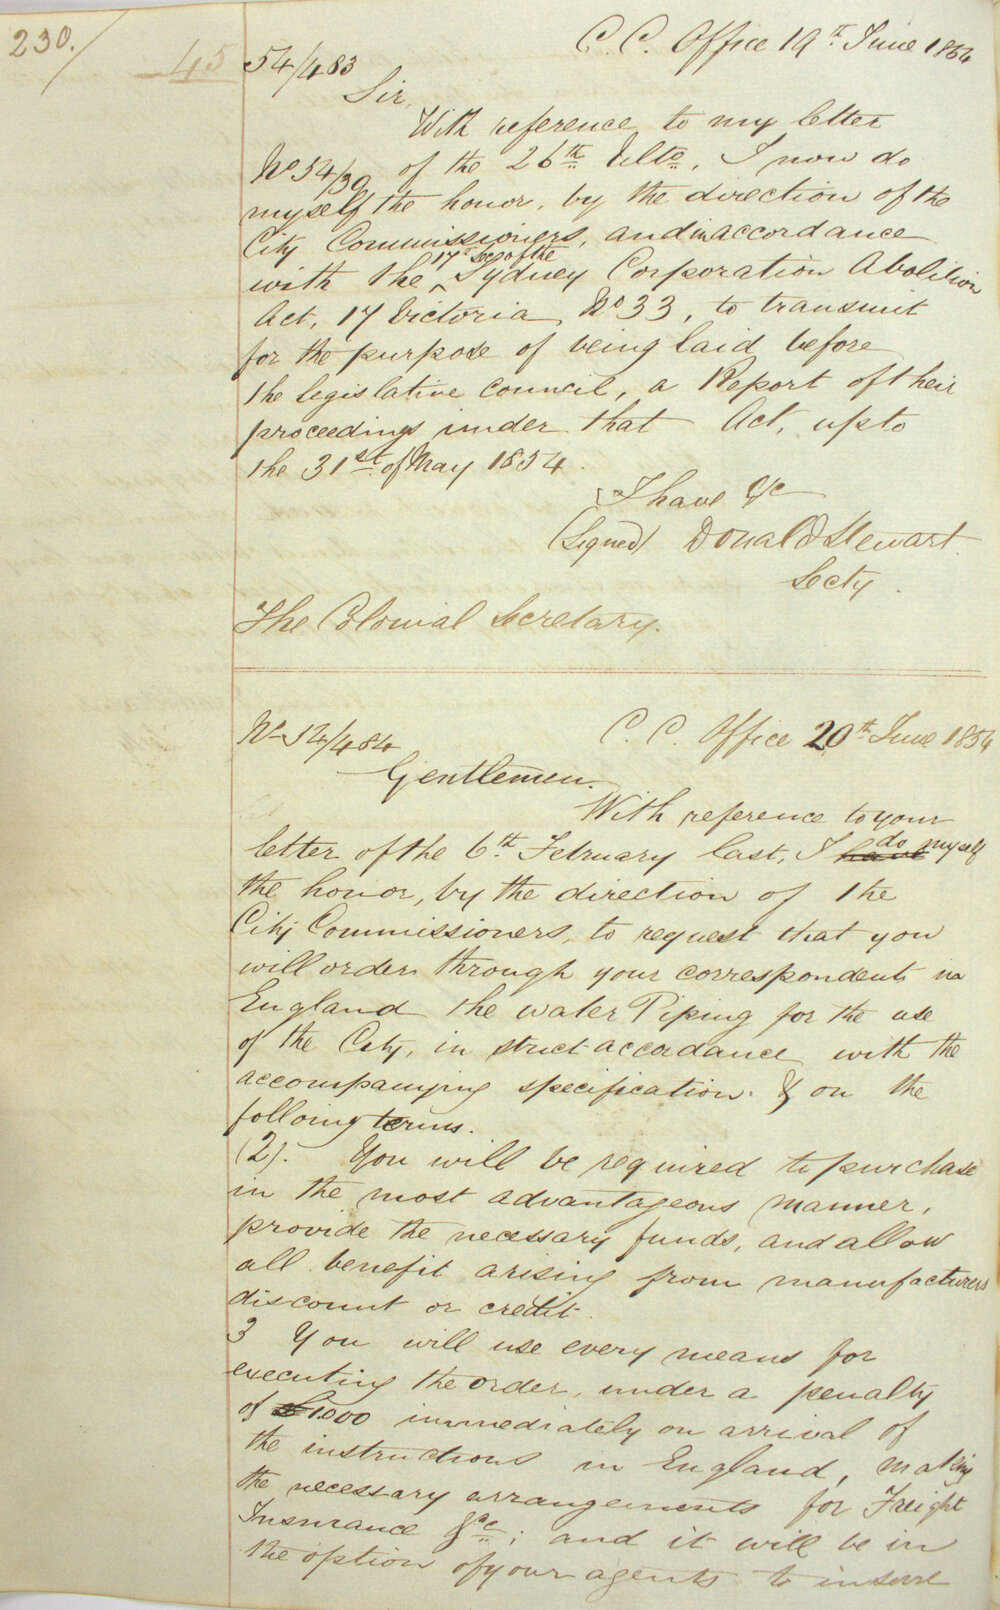 230.
45
54/483
C. C. Office 19th June 1854
Sir,
With reference to my letter
No 54/39 of the 26th Ulto, I now do
myself the honor, by the direction of the
City Commissioners, and in accordance
with the 17th Sec of the Sydney Corporation Abolition
Act, 17 Victoria No 33, to transmit
for the purpose of being laid before
the Legislative Council, a Report of their
proceedings under that Act, up to
the 31st of May 1854.
I have &c
(Signed) Donald Stewart
Secty.
The Colonial Secretary.
No 54/484
C. C. Office 20th June 1854
Gentlemen.
With reference to your
letter of the 6th February last, I have do myself
the honor, by the direction of the
City Commissioners, to request that you
will order through your correspondents in
England the water Piping for the use
of the City, in strict accordance with the
accompanying specification & on the
folloing terms.
(2). You will be required to purchase
in the most advantageous manner,
provide the necessary funds, and allow
all benefit arising from manufacturers
discount or credit.
3 You will use every means for
executing the order, under a penalty
of £1000 immediately on arrival of
the instructions in England, making
the necessary arrangements for Freight
Insurance &c; and it will be in
the option of your agents to insure